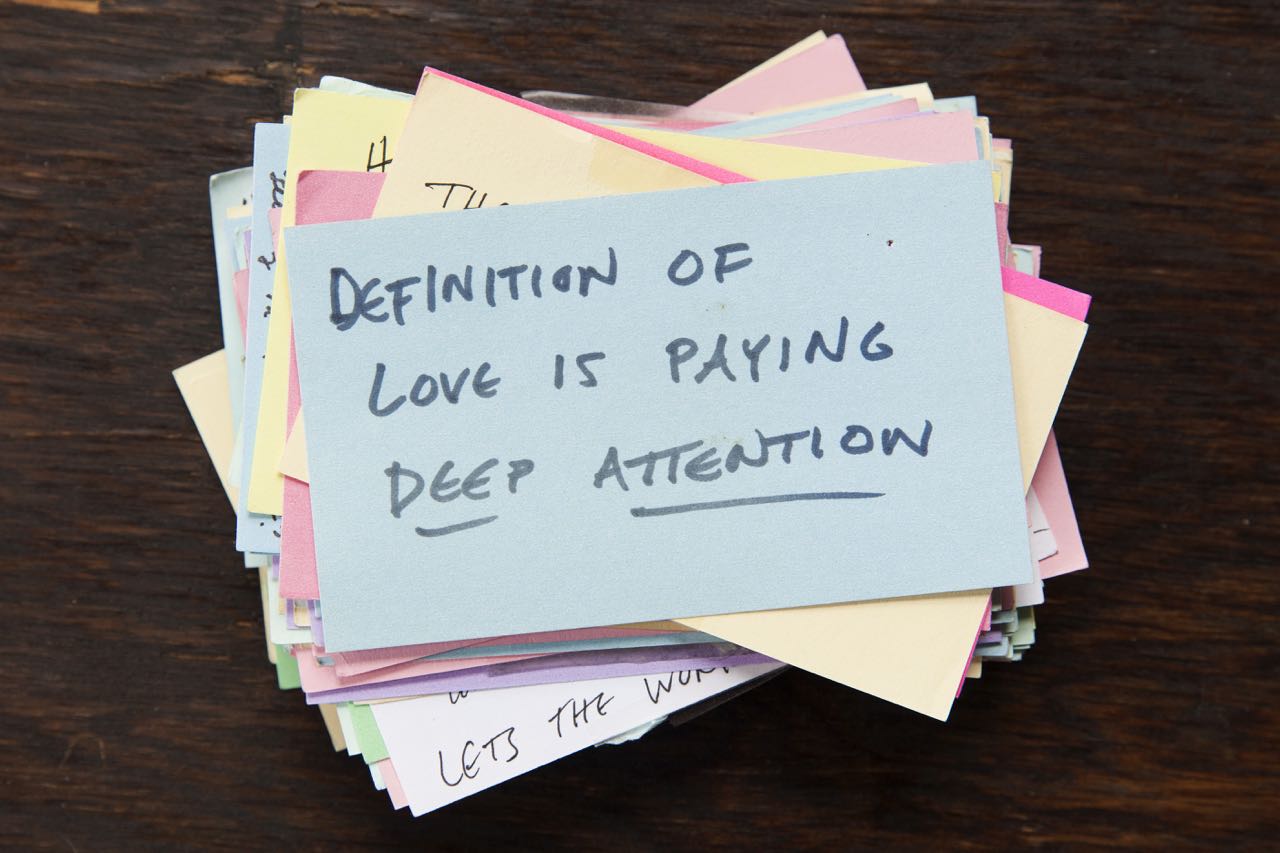 DEFINITION OF
LOVE IS PAYING
DEEP ATTENTION
LETS THE